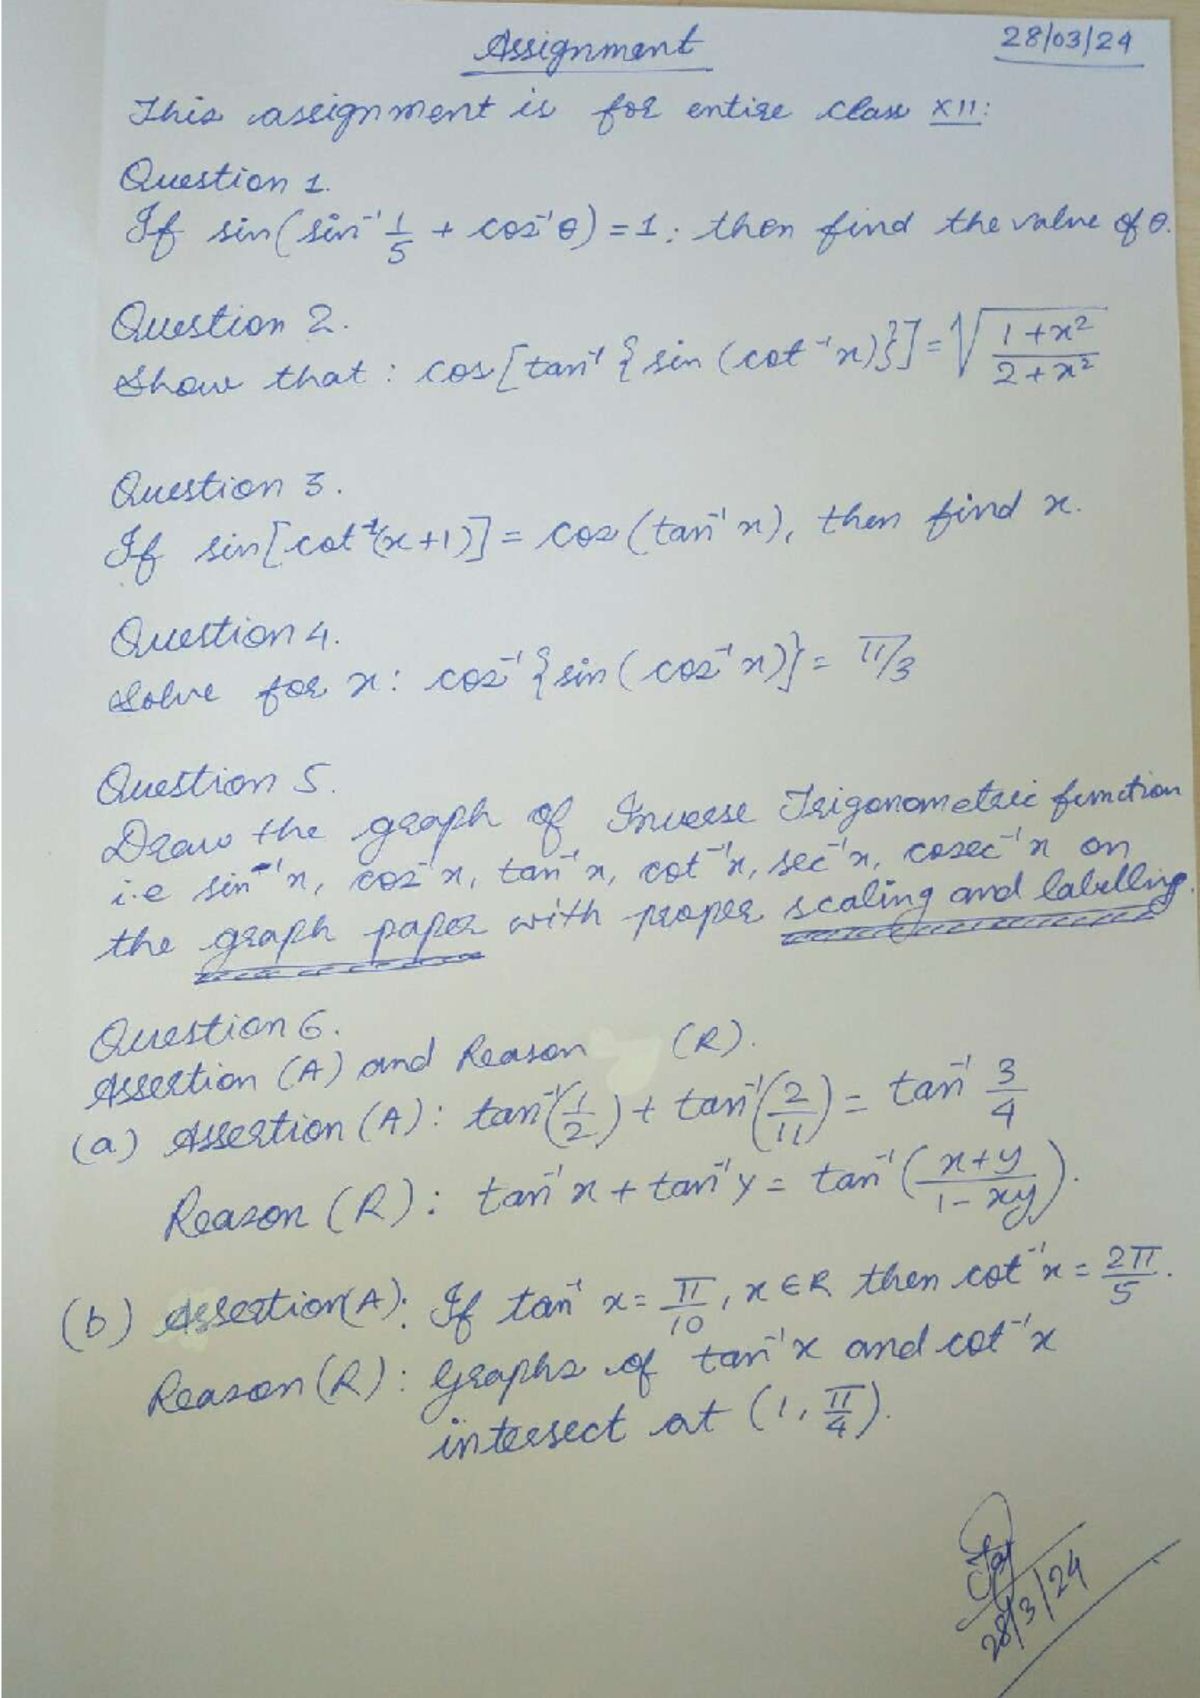 Assignment 28/03/24
This assignment is for entire class XII:
Question 1.
If sin(sin⁻¹ 1/5 + cos⁻¹θ) = 1; then find the value of θ.
Question 2.
Show that: cos[tan⁻¹{sin(cot⁻¹x)}] = √((1+x²)/(2+x²))
Question 3.
If sin[cot⁻¹(x+1)] = cos(tan⁻¹x), then find x.
Question 4.
Solve for x: cos⁻¹{sin(cos⁻¹x)} = π/3
Question 5.
Draw the graph of Inverse Trigonometric function
i.e sin⁻¹x, cos⁻¹x, tan⁻¹x, cot⁻¹x, sec⁻¹x, cosec⁻¹x on
the graph paper with proper scaling and labelling.
Question 6.
Assertion (A) and Reason (R).
(a) Assertion (A): tan⁻¹(1/2) + tan⁻¹(2/11) = tan⁻¹ 3/4
Reason (R): tan⁻¹x + tan⁻¹y = tan⁻¹((x+y)/(1-xy)).
(b) Assertion(A): If tan⁻¹ x = π/10, x ∈ R then cot⁻¹x = 2π/5.
Reason (R): Graphs of tan⁻¹x and cot⁻¹x
intersect at (1, π/4).
28/3/24